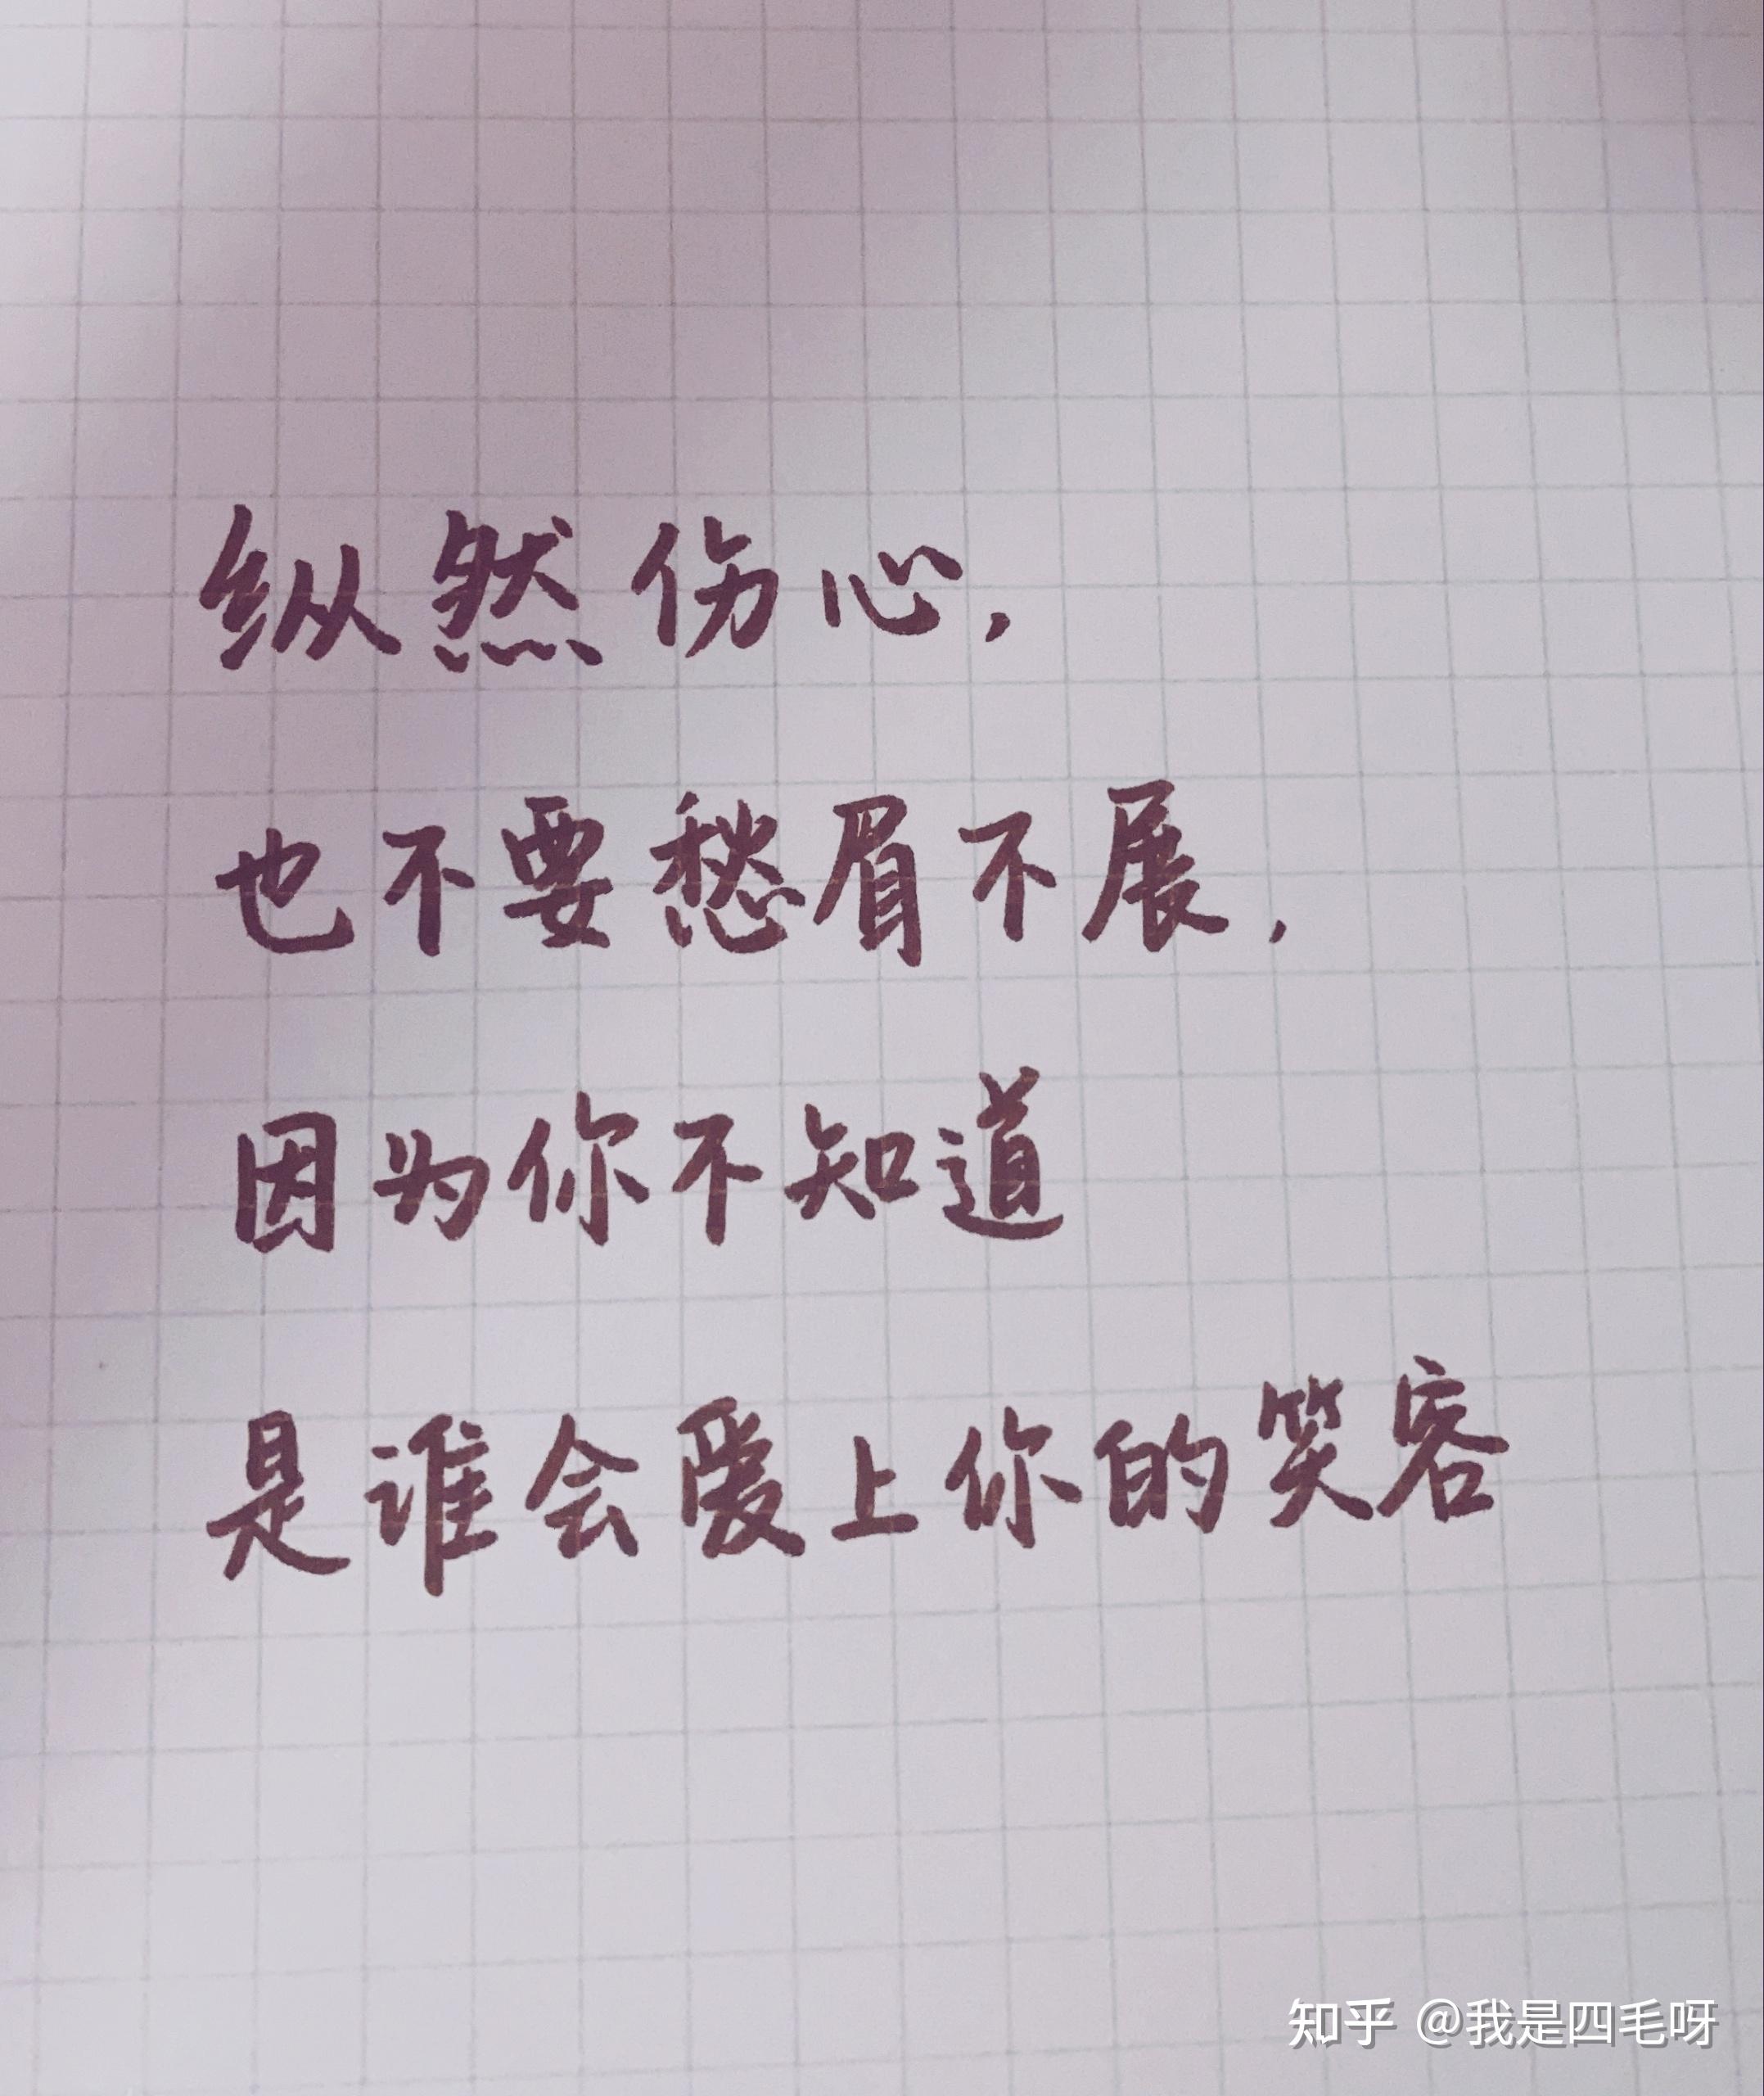 纵然伤心，
也不要愁眉不展，
因为你不知道
是谁会爱上你的笑容
知乎 @我是四毛呀